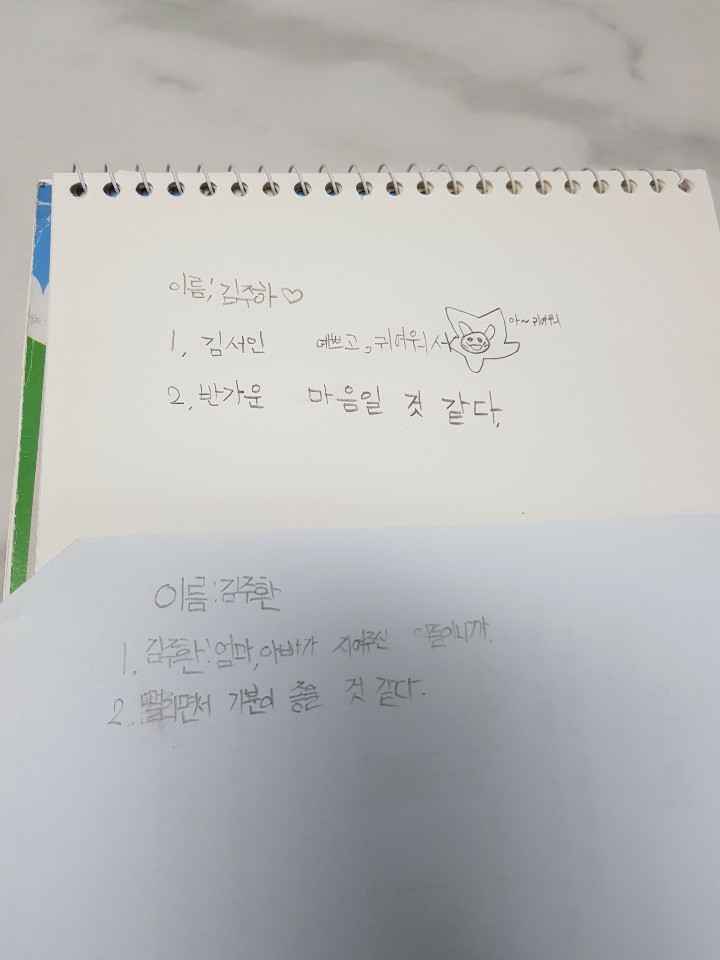 이름; 김주하♡
1. 김서인 예쁘고, 귀여워서
아~귀여워
2. 반가운 마음일 것 같다.
이름: 김주환
1. 김주환: 엄마, 아빠가 지어주신 이름이니까.
2. 떨리면서 기분이 좋을 것 같다.